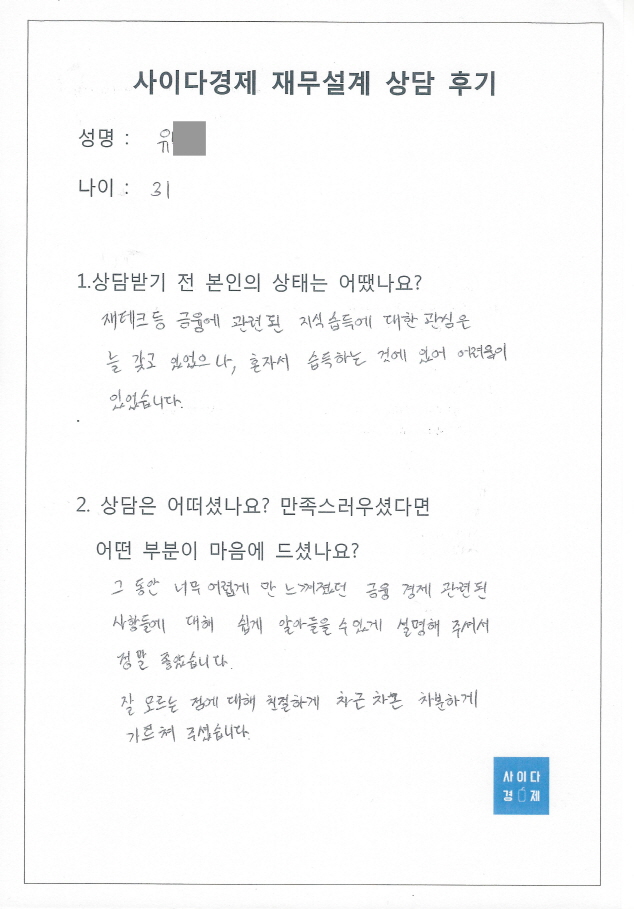 사이다경제 재무설계 상담 후기
성명 : 유
나이 : 31
1.상담받기 전 본인의 상태는 어땠나요?
재테크등 금융에 관련된 지식습득에 대한 관심은
늘 갖고 있었으나, 혼자서 습득하는 것에 있어 어려움이
있었습니다.
2. 상담은 어떠셨나요? 만족스러우셨다면
어떤 부분이 마음에 드셨나요?
그 동안 너무 어렵게 만 느껴졌던 금융 경제 관련된
사항들에 대해 쉽게 알아들을 수 있게 설명해 주셔서
정말 좋았습니다.
잘 모르는 점에 대해 친절하게 차근 차근 차분하게
가르쳐 주셨습니다.
사이다
경제